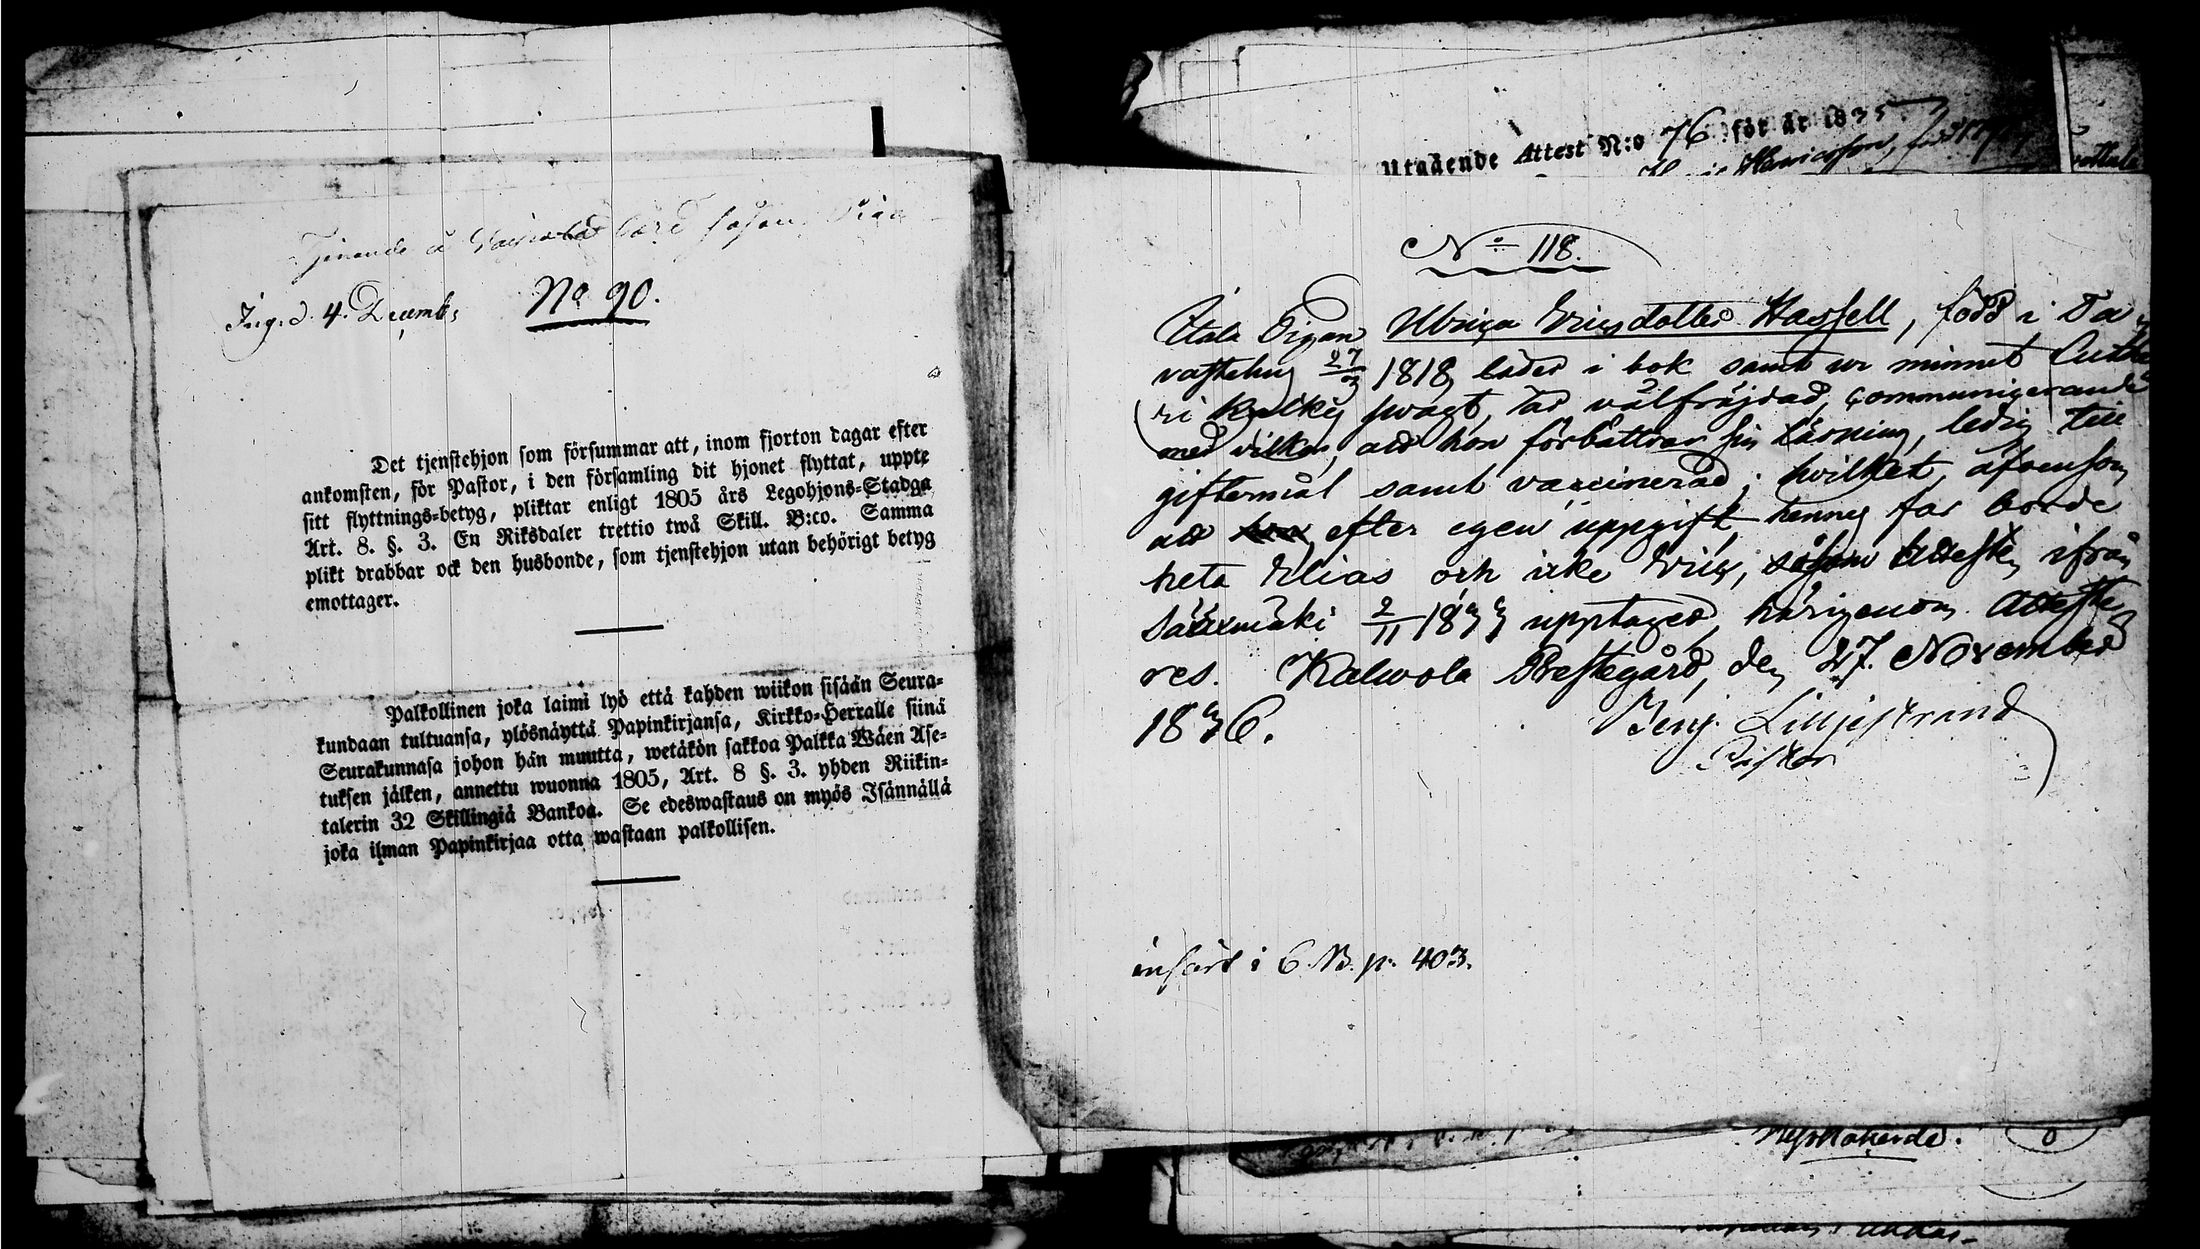 Ingd. 4. Decemb.
No 90.
Det tjenstehjon som försummar att, inom fjorton dagar efter
ankomsten, för Pastor, i den församling dit hjonet flyttat, uppte
sitt flyttnings-betyg, pliktar enligt 1805 års Legohjons-Stadga
Art. 8. §. 3. En Riksdaler trettio twå Skill. B:co. Samma
plikt drabbar ock den husbonde, som tjenstehjon utan behörigt betyg
emottager.
Palkollinen joka laimi lyö että kahden wiikon sisään Seura-
kundaan tultuansa, ylösnäyttä Papinkirjansa, Kirkko-Herralle siinä
Seurakunnasa johon hän muutta, wetäkön sakkoa Palkka Wäen Ase-
tuksen jälken, annettu wuonna 1805, Art. 8 §. 3. yhden Riikin-
talerin 32 Skillingiä Bankoa. Se edeswastaus on myös Isännällä
joka ilman Papinkirjaa otta wastaan palkollisen.
Utgående Attest N:o 76 för år 1835
Henricsson,
No 118.
Pigan Ulrica Ericsdotter Hassell, född i Ta-
vastehus 27/3 1818, läser i bok samt ur minnet Luthe
ri svagt, är välfräjdad, communicerande
med vilkor, att hon förbättrar sin läsning, ledig till
giftermål samt vaccinerad; hvilket, äfvensom
att efter egen uppgift, hennes far borde
heta Elias och icke Eric, såsom Attesten ifrån
Sääxmäki 2/11 1833 upptager, härigenom Atteste
res. Kalvola Prestegård, den 27. November
1836. Benj. Lilljestrand
Pastor
införd i C. B. p. 403.